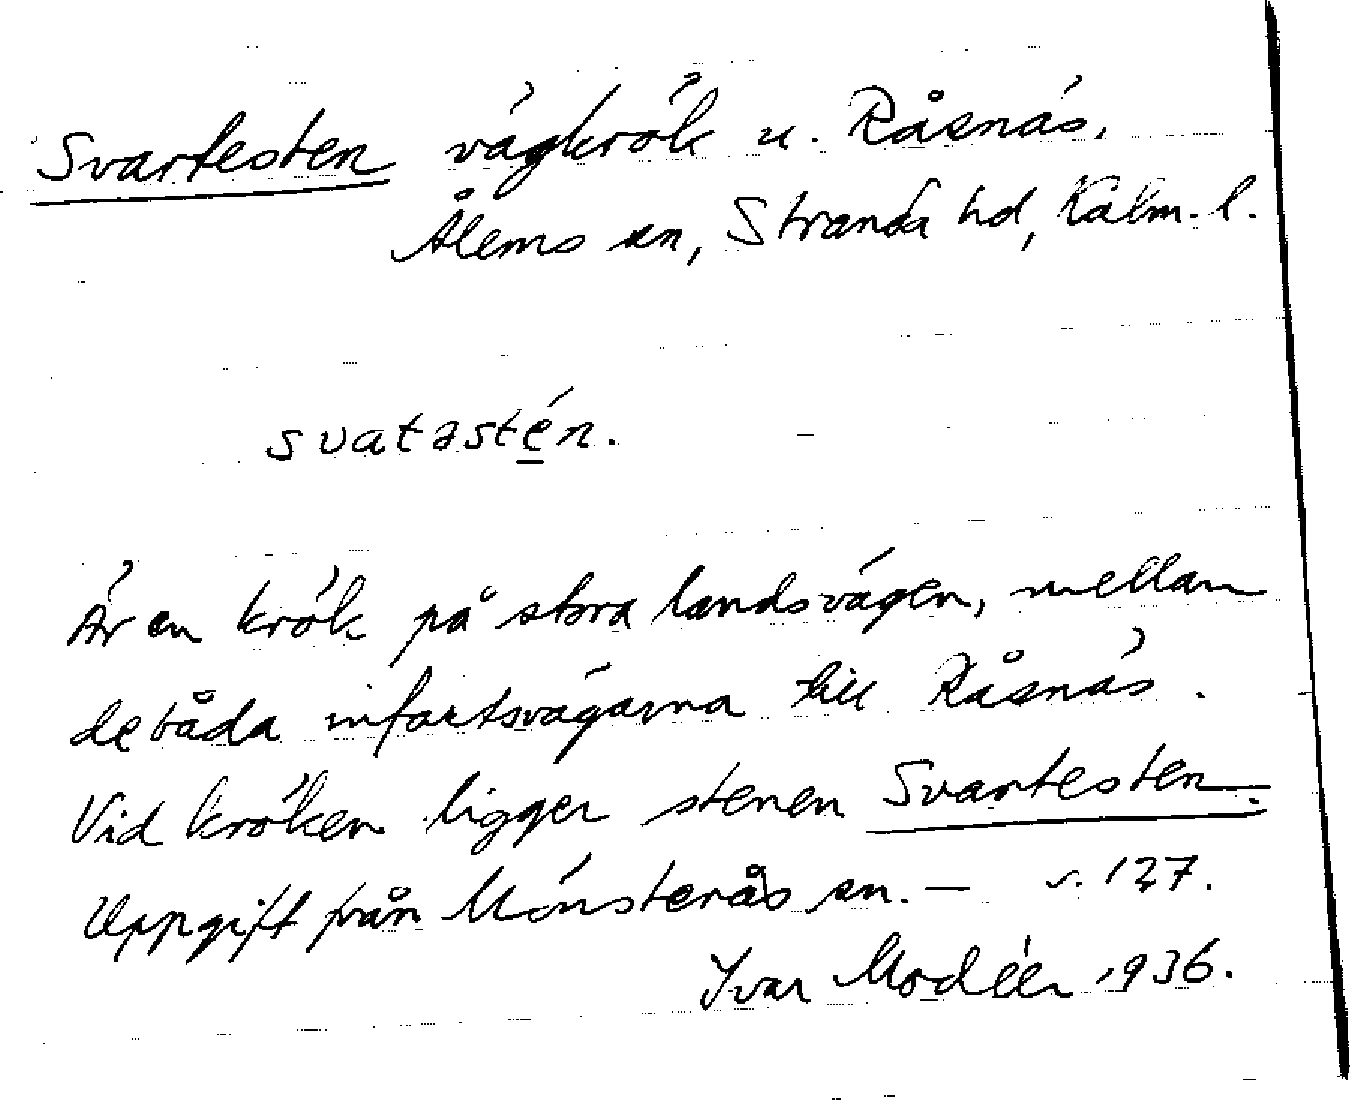 Svartesten vägkrök u. Råsnäs.
Ålems sn, Stranda hd, Kalm. l.
svatəstén.
Är en krök på stora landsvägen, mellan
de båda infartsvägarna till Råsnäs.
Vid kröken ligger stenen Svartesten.
Uppgift från Mönsterås sn. — s. 127.
Ivar Modéer 1936.